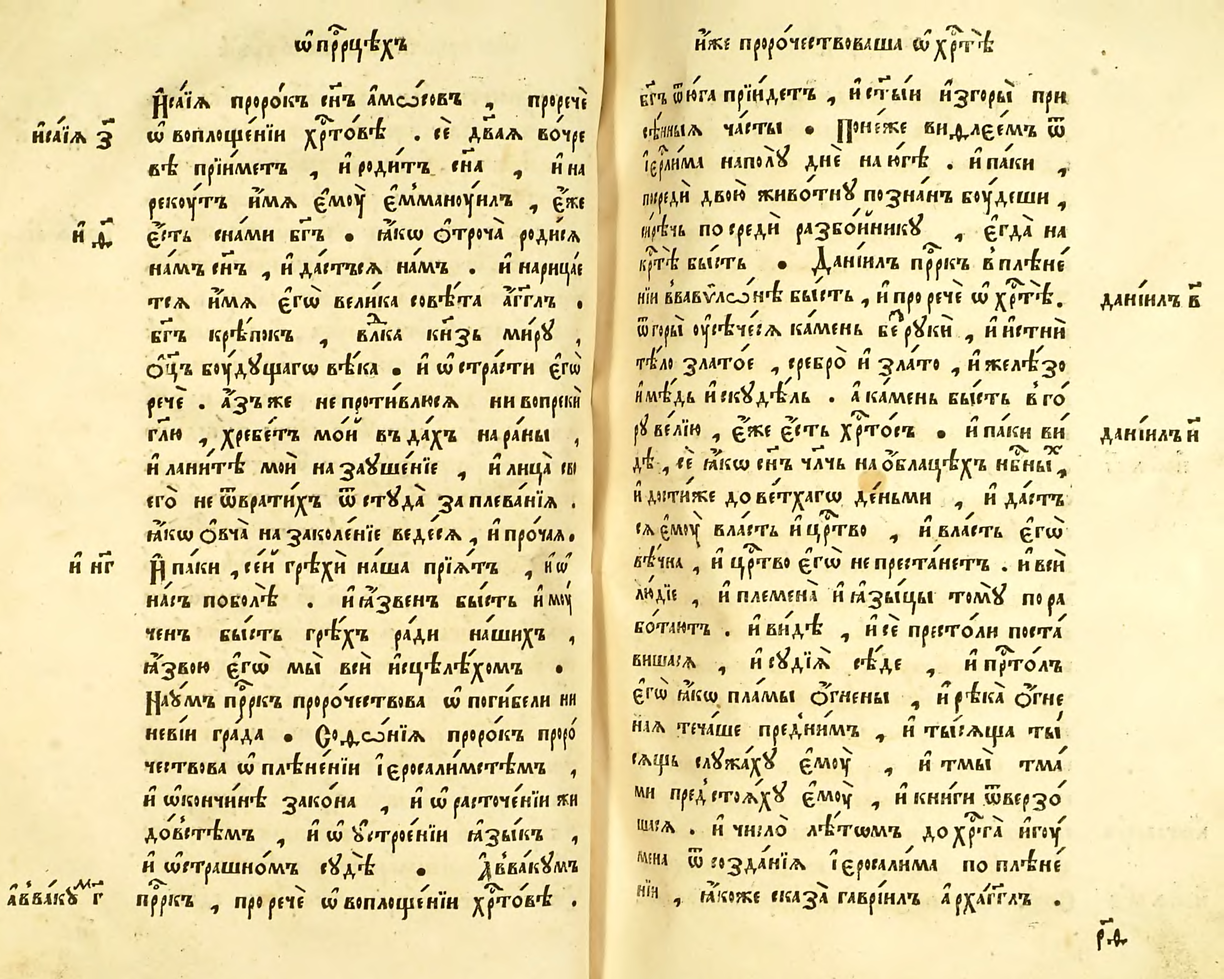 ѡ҆ прⷪ҇рцѣхъ
И҆са́їѧ проро́къ сн҃ъ а҆мѡ́совъ , проречѐ
и҆са́їѧ з҃
ѡ҆ воплоще́нїи хрⷭ҇то́вѣ . сѐ дв҃аѧ во чре
вѣ прїи́метъ , и҆ роди́тъ сн҃а , и҆ на
рекоу́тъ и҆́мѧ є҆моу̀ є҆мманоу́илъ , є҆́же
и҆ ѳ҃
є҆́сть снами бг҃ъ . ꙗ҆́кѡ ѻ҆троча̀ роди́сѧ
намъ сн҃ъ , и҆ да́стьсѧ намъ . и҆ нарица́е
тсѧ и҆́мѧ є҆гѡ̀ вели́ка совѣ́та а҆́гг҃лъ .
бг҃ъ крѣ́покъ , влⷣка кн҃зь ми́рꙋ ,
ѻ҆ц҃ъ боу́дꙋщагѡ вѣ́ка . и҆ ѡ҆ стра́сти є҆гѡ̀
речѐ . а҆́зъ же не проти́влюсѧ ни вопрекѝ
гл҃ю , хребе́тъ мо́й въ да́хъ на ра́ны ,
и҆ лани́тѣ мои̑ на заꙋше́нїе , и҆ лица̀ сво
его̀ не ѿврати́хъ ѿ стꙋда̀ заплева́нїѧ .
ꙗ҆́кѡ ѻ҆вча̀ на заколе́нїе веде́сѧ , и҆ про́чаѧ .
и҆ нг҃
И҆ па́ки , се́й грѣхѝ на́ша прїѧ́тъ , и҆ ѡ҆
на́съ поболѣ̀ . и҆ ꙗ҆́звенъ бы́сть и҆ моу́
ченъ бы́сть грѣ́хъ ра́ди на́шихъ ,
ꙗ҆́звою є҆гѡ̀ мы̀ всѝ и҆сцѣлѣ́хомъ .
Наꙋ́мъ прⷪ҇ркъ проро́чествова ѡ҆ поги́бели ни
неві́и гра́да . Соѳѡ́нїѧ проро́къ проро́
чествова ѡ҆ плѣне́нїи і҆еросали́мстѣмъ ,
и҆ ѡ҆кончи́нѣ зако́на , и҆ ѡ҆ расточе́нїи жи
до́встѣмъ , и҆ ѡ҆ ᲂу҆строе́нїи ꙗ҆зы́къ ,
и҆ ѡ҆стра́шномъ сꙋдѣ̀ . А҆ввакꙋ́мъ
а҆вва́кꙋⷨ г҃
прⷪ҇ркъ , проречѐ ѡ҆ воплоще́нїи хрⷭ҇то́вѣ .
и҆́же проро́чествоваша ѡ҆ хрⷭ҇тѣ̀
бг҃ъ ѿ ю́га прїи́детъ , и҆ ст҃ы́и и҆згоры̀ при
сѣ́нныѧ ча́сты . Поне́же виѳлее́мъ ѿ
і҆ерⷭ҇ли́ма наполꙋ̀ днѐ на ю́гѣ . и҆ па́ки ,
посредѝ двою̀ живо́тнꙋ позна́нъ боу́деши ,
си́рѣчь посредѝ разбо́йникꙋ , є҆гда̀ на
крⷭ҇тѣ̀ бы́сть . Данїи́лъ прⷪ҇ркъ в плѣне́
нїи в вавѷлѡ́нѣ бы́сть , и҆ проречѐ ѡ҆ хрⷭ҇тѣ̀ .
данїи́лъ в҃
ѿ горы̀ ᲂу҆сѣче́сѧ ка́мень беⷥ рꙋкѝ , и҆ и҆стнѝ
тѣ́ло злато́е , сребро̀ и҆ зла́то , и҆ желѣ́зо
и҆ мѣ́дь и҆ скꙋдѣ́ль . а ка́мень бы́сть в го́
рꙋ ве́лїю , є҆́же є҆́сть хрⷭ҇то́съ . и҆ па́ки ви́
данїи́лъ и҃
дѣ , сѐ ꙗ҆́кѡ сн҃ъ чл҃чь на ѻ҆́блацѣхъ нбⷭ҇ныⷯ ,
и҆ дости́же до ве́тхагѡ де́ньми , и҆ да́стъ
сѧ є҆моу̀ вла́сть и҆ црⷭ҇тво , и҆ вла́сть є҆гѡ̀
вѣ́чна , и҆ црⷭ҇тво є҆гѡ̀ не преста́нетъ . и҆ всѝ
лю́дїе , и҆ племена̀ и҆ ꙗ҆зы́цы томꙋ̀ пора
бо́таютъ . и҆ ви́дѣ , и҆ сѐ престо́ли поста́
вишасѧ , и҆ сꙋдїѧ̀ сѣ́де , и҆ прⷭ҇то́лъ
є҆гѡ̀ ꙗ҆́кѡ пла́мы ѻ҆́гнены , и҆ рѣка̀ ѻ҆́гне
наѧ теча́ше преⷣни́мъ , и҆ ты́сѧща ты́
сѧщь слꙋжа́хꙋ є҆моу̀ , и҆ тмы̀ тма́
ми предстоѧ́хꙋ є҆моу̀ , и҆ кни́ги ѿверзо́
шасѧ . и҆ число̀ лѣ́тѡмъ до хрⷭ҇та̀ и҆гоу́
мена ѿ созда́нїѧ і҆еросали́ма по плѣне́
нїи , ꙗ҆́коже сказа̀ гаврїи́лъ а҆рха́гг҃лъ .
рѳ҃